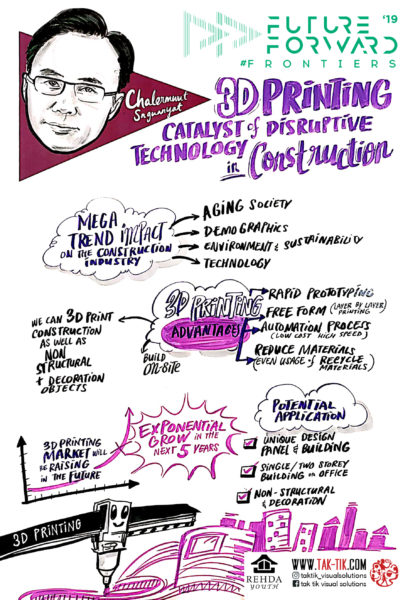 FUTURE '19
FORWARD
#FRONTIERS
Chalermwut
Saguanyat
3D PRINTING
CATALYST of DISRUPTIVE
TECHNOLOGY in Construction
MEGA
TREND IMPACT
ON THE CONSTRUCTION
INDUSTRY
AGING SOCIETY
DEMOGRAPHICS
ENVIRONMENT & SUSTAINABILITY
TECHNOLOGY
3D PRINTING
ADVANTAGES
RAPID PROTOTYPING
FREE FORM (LAYER BY LAYER PRINTING)
AUTOMATION PROCESS
(LOW COST HIGH SPEED)
REDUCE MATERIALS
(EVEN USAGE OF RECYCLE
MATERIALS)
BUILD
ON-SITE
WE CAN 3D PRINT
CONSTRUCTION
AS WELL AS
NON
STRUCTURAL
+ DECORATION
OBJECTS
3D PRINTING
MARKET WILL
BE RAISING
IN THE FUTURE
EXPONENTIAL
GROW IN THE
NEXT 5 YEARS
POTENTIAL
APPLICATION
UNIQUE DESIGN
PANEL & BUILDING
SINGLE/TWO STOREY
BUILDING OR OFFICE
NON-STRUCTURAL
& DECORATION
3D PRINTING
REHDA
YOUTH
WWW.TAK-TIK.COM
taktik_visualsolutions
tak tik visual solutions